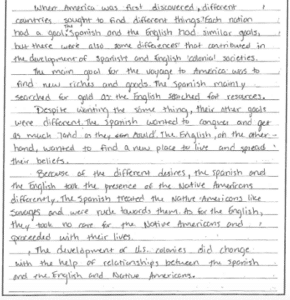 When America was first discovered, different
countries sought to find different things. Each nation
had a goal. The Spanish and the English had similar goals,
but there were also some differences that contributed in
the development of Spanish and English colonial societies.
The main goal for the voyage to America was to
find new riches and goods. The Spanish mainly
searched for gold as the English searched for resources.
Despite wanting the same thing, their other goals
were different. The Spanish wanted to conquer and get
as much land as they could. The English, on the other
hand, wanted to find a new place to live and spread
their beliefs.
Because of the different desires, the Spanish and
the English took the presence of the Native Americans
differently. The Spanish treated the Native Americans like
savages and were rude towards them. As for the English,
they took no care for the Native Americans and
proceeded with their lives.
The development of the colonies did change
with the help of relationships between the Spanish
and the English and Native Americans.